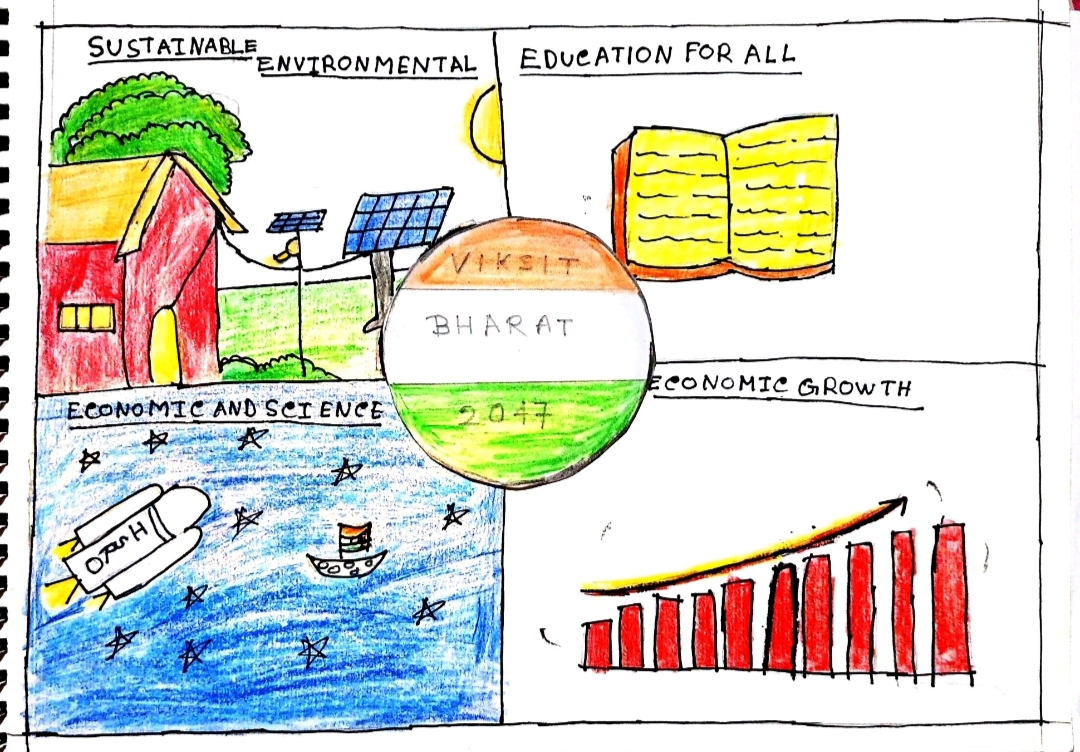 SUSTAINABLE
ENVIRONMENTAL
EDUCATION FOR ALL
VIKSIT
BHARAT
2047
ECONOMIC AND SCIENCE
ECONOMIC GROWTH